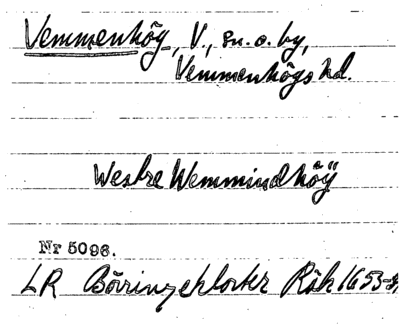 Vemmenhög, V., sn. o. by,
Vemmenhögs hd.
Westre Wemmindhöÿ
Nr 5096.
LR Börringekloster Räk 1653-